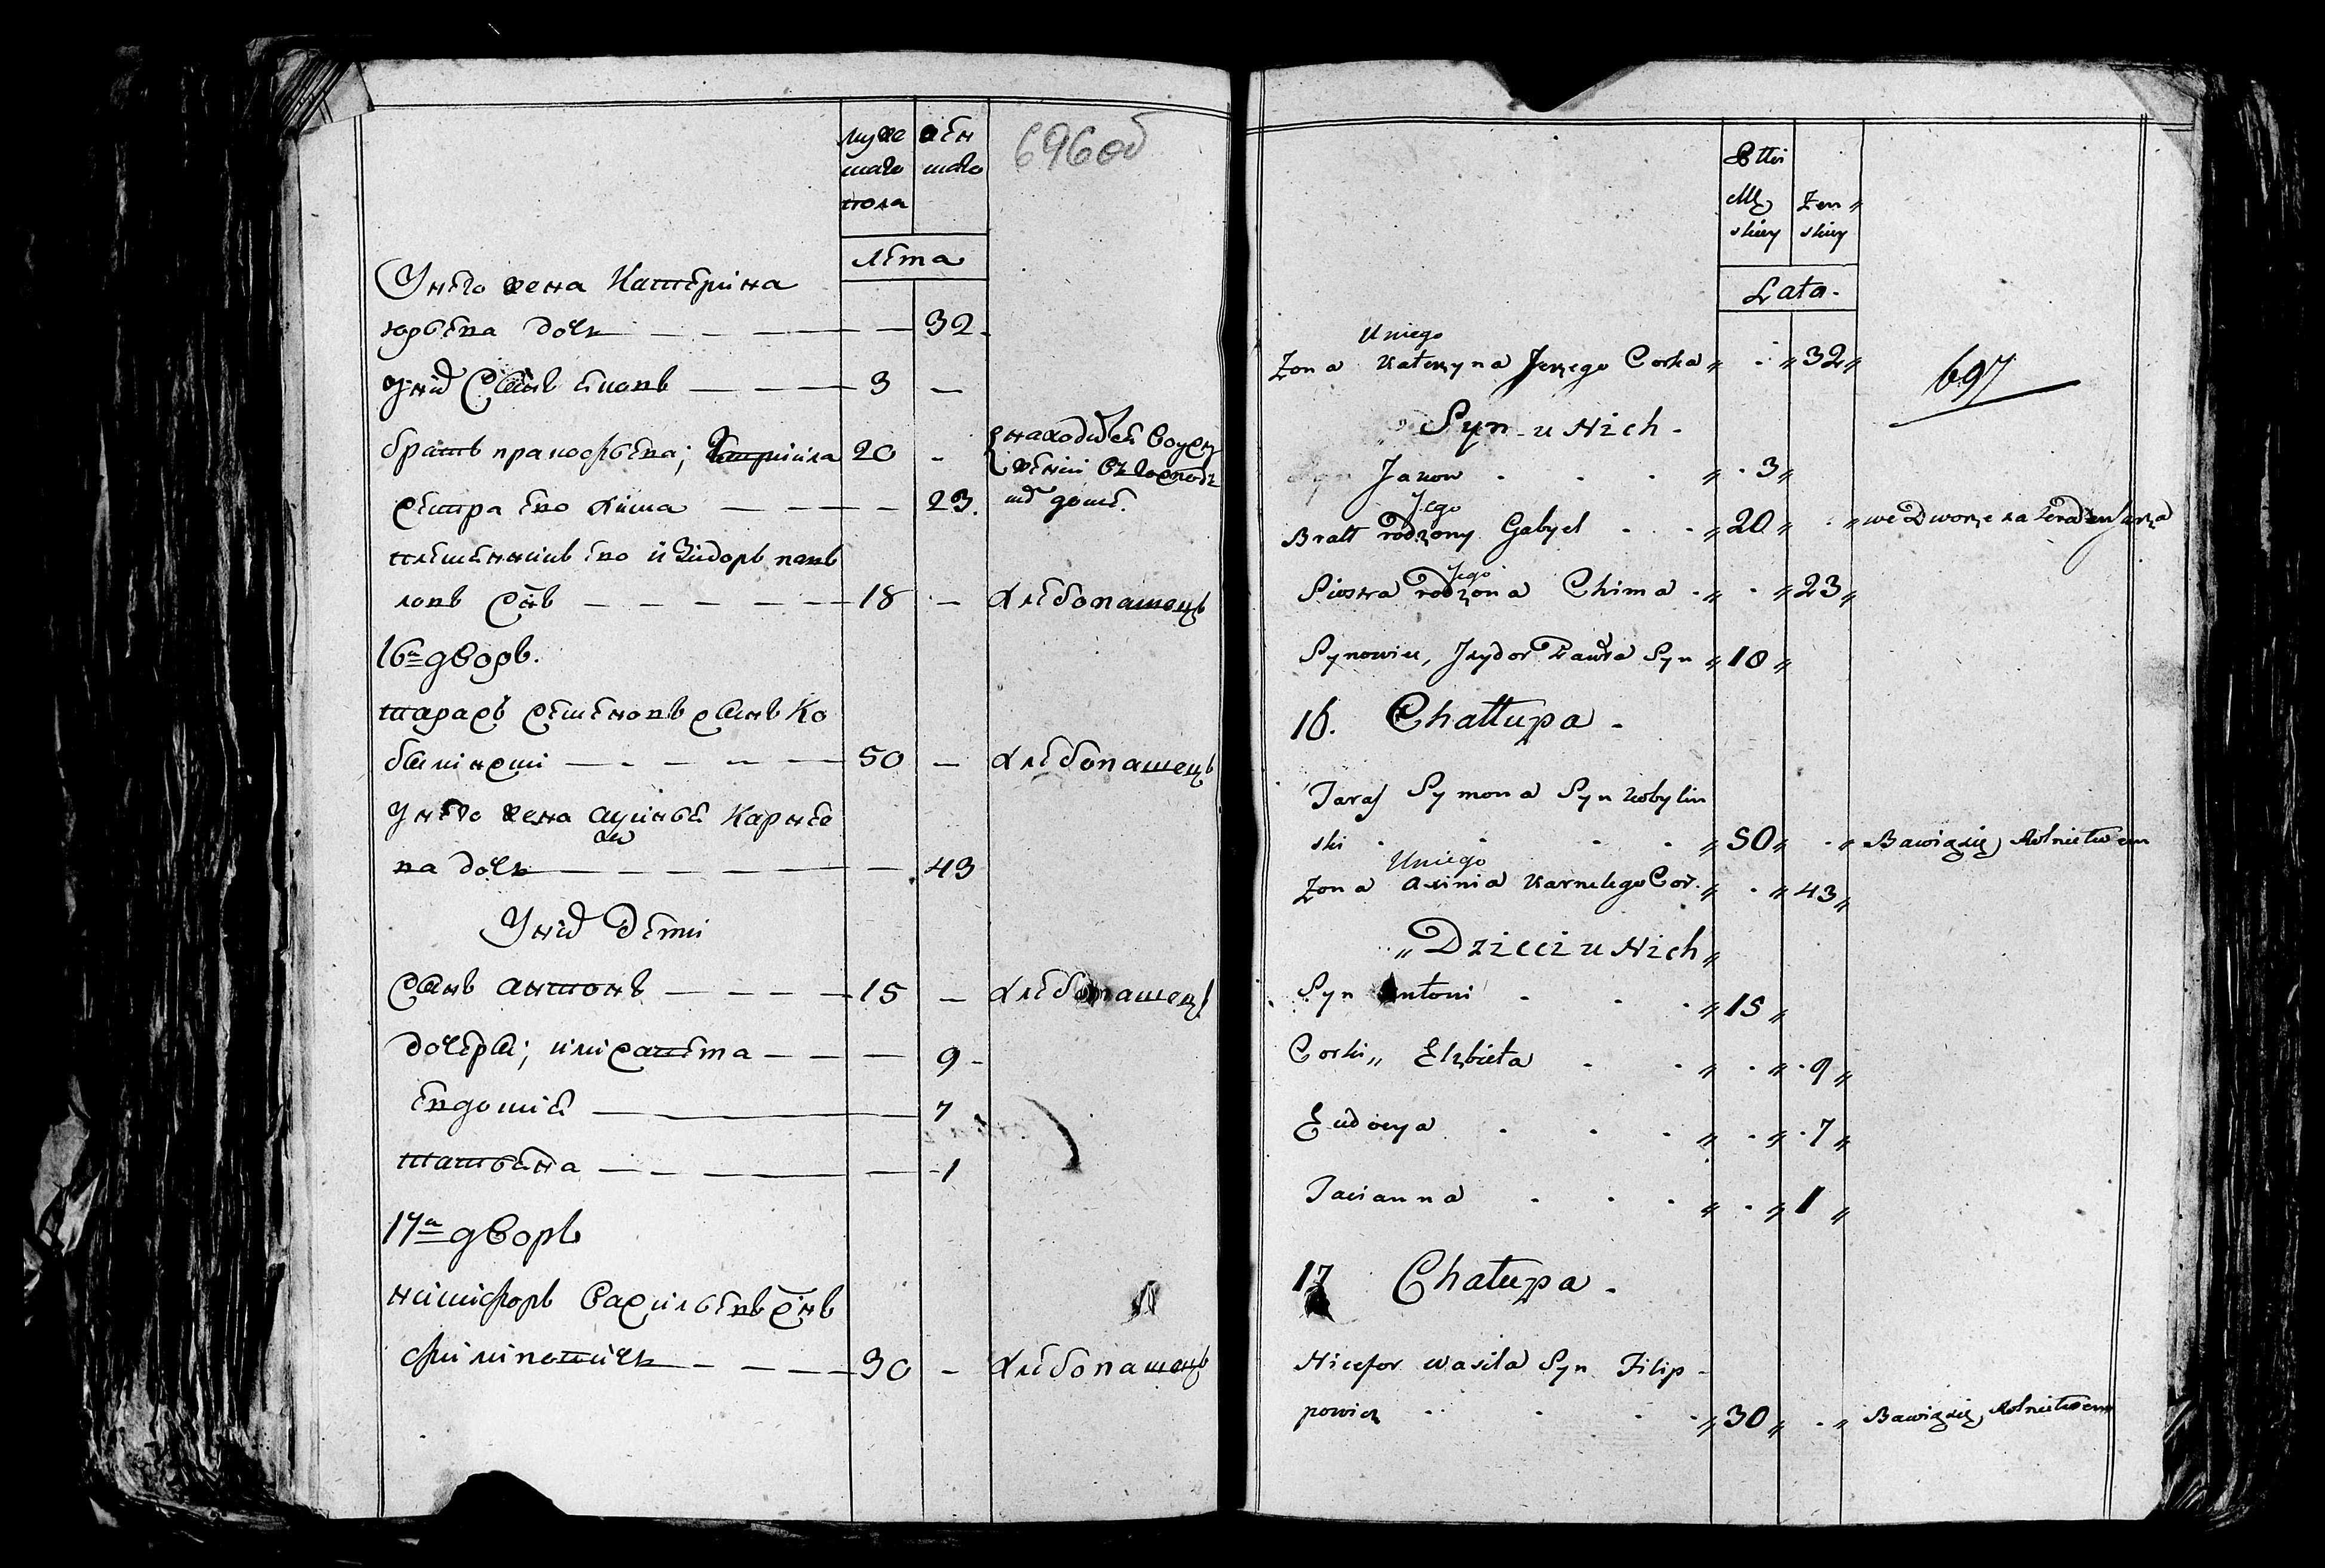 муже жен
скаго скаго
пола
696об
лета
У него жена Катерина
юрьева дочь — — — — 32
У них Сынъ яковъ — — — 3 —
братъ прокофьева; Гаврiила 20 — находится въ услу
сестра его хима — — — — 23. жении въ господс
ком доме.
племянникъ его изидоръ пав
ловъ Снъ — — — — — 18 — хлебопашецъ
16й дворъ.
тарасъ семеновъ сынъ Ко
былинскi — — — — — 50 — хлебопашецъ
У него жена аксинья Карнее
ва дочь — — — — — — 43
У них дети
Сынъ антонъ — — — — 15 — хлебопашецъ
дочеры; илисавета — — — 9
евдокия — 7
татьяна — — — 1
17й дворъ
никифоръ васильевъ снъ
филиповичь — — — 30 — хлебопашецъ
Płci
Mę Zen
skiey skiey
Lata.
Uniego
Zona Katerzyna Jerzego Corka 32
697
Syn u Nich
Jakow 3
Jego
Bratt rodzony Gabryel 20 we Dworze za
Jego
Siostra rodzona Chima 23
Synowiec, Izydor Pawła Syn 18
16. Chattupa
Taras Symona Syn Kobylin
ski 50 Bawiący się Rolnictwem
Uniego
Zona Axinia Karnelego Cor. 43
Dzieci u Nich
Syn Antoni 15
Corki Elzbieta 9
Eudocya 7
Tacianna 1
17 Chatupa
Nicefor Wasila Syn Filip
powicz 30 Bawiący się Rolnictwem